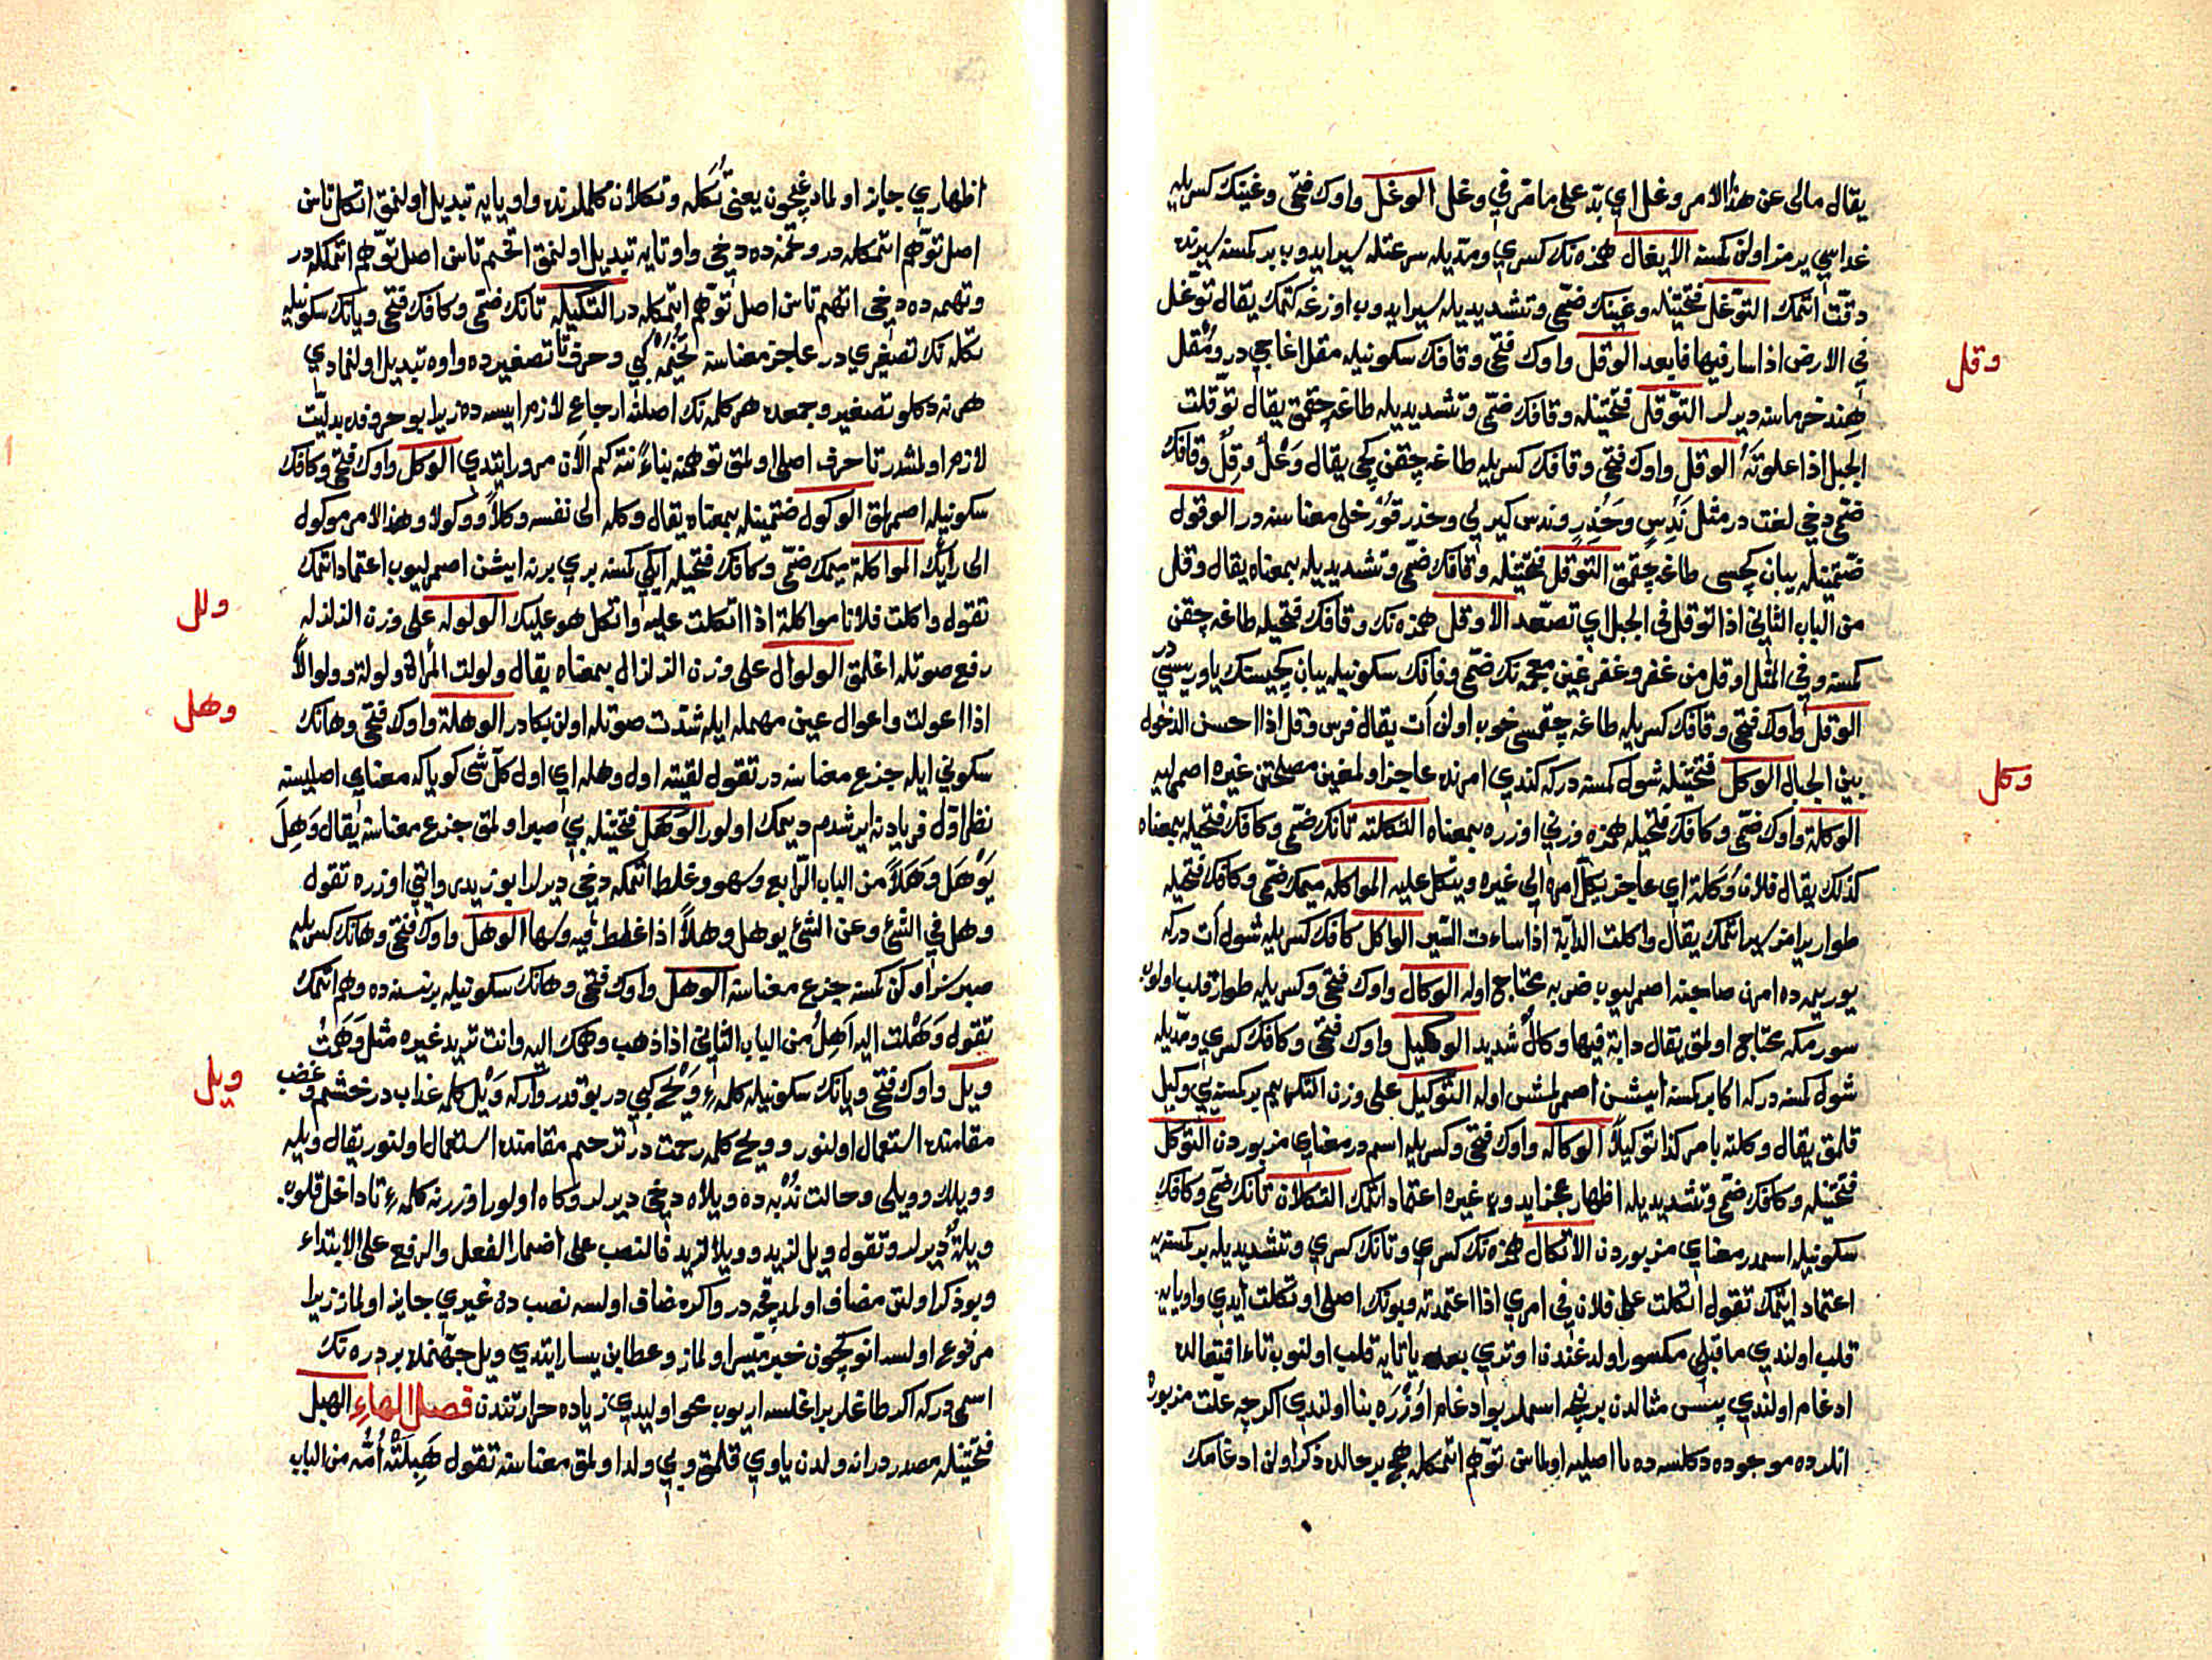 يقال مالى عن هذا الامر وغل اي بدّ على ما مرّ في وغل الوغل واوك فتحى وغينك كسريله
غداسي يرمز اولن كمسنه الايغال همزه نك كسري ومدّيله سرعتله سير ايدوب بر كمسنه يرنده
دقّت اتمك التوغّل فتحتينله وغينك ضمّى وتشديديله سير ايدوب اوزغه كتمك يقال توغّل
في الارض اذا سار فيها فابعد الوقل واوك فتحى وقافك سكونيله مقل اغاجي در ومُقل
هند خرماسنه ديرلر التوقّل فتحتينله وقافك ضمّى وتشديديله طاغه چقمق يقال توقّلت
الجبل اذا علوته الوقل واوك فتحى وقافك كسريله طاغه چقن كچى يقال وَعْلٌ وَقِلٌ وقافك
ضمّى دخى لغت در مثل نَدُسٍ وحَذُرٍ وندس كيرلي وحذر قورخلى معناسنه در الوقول
ضمّتينله يبان كچسى طاغه چقمق التوقّل فتحتينله وقافك ضمّى وتشديديله بمعناه يقال وقل
من الباب الثاني اذا توقل في الجبل اي تصعّد الاوقل همزه نك وقافك فتحيله طاغه چقن
كمسنه وفي المثل اوقل من غفر وغفر غين معجمه نك ضمّى وفانك سكونيله يبان كچيسنك ياوريسيدر
الوقل واوك فتحى وقافك كسريله طاغه چقمسى خوب اولن آت يقال فرس وقل اذا احسن الدخول
بين الجبال الوكل فتحتينله شول كمسنه دركه كندي امرنده عاجز اولمغين مصلحتن غيره اصمرليه
الوكلة واوك ضمّى وكافك فتحيله همزه وزنى اوزره بمعناه التكلته تانك ضمّى وكافك فتحيله بمعناه
كذلك يقال فلان وُكَلة اي عاجز يكل امره الى غيره ويتكل عليه المواكله ميمك ضمّى وكافك فتحيله
طوار يرامز سير اتمك يقال واكلت الدابة اذا ساءت السّير الواكل كافك كسريله شول آت دركه
يوريمه ده امرن صاحبنه اصمرليوب ضربه محتاج اوله الوكال واوك فتحى وكسريله طوار قلب اولوب
سورمكه محتاج اولمق يقال دابة فيها وكالٌ شديد الوكيل واوك فتحى وكافك كسري ومدّيله
شول كمسنه دركه اكا بر كمسنه ايشن اصمرلمش اوله التوكيل على وزن التكريم بر كمسنه يي وكيل
قلمق يقال وكلته بامر كذا توكيلاً الوكاله واوك فتحى وكسريله اسمدر معناي مزبوردن التوكّل
فتحتينله وكافك ضمّى وتشديديله اظهار عجز ايدوب غيره اعتماد اتمك التكلان تانك ضمّى وكافك
سكونيله اسمدر معناي مزبوردن الاتّكال همزه نك كسري وتانك كسري وتشديديله بر كمسنه يه
اعتماد ايتمك تقول اتّكلت على فلان في امري اذا اعتمدته وبونك اصلى اوتكلت ايدي واو يايه
قلب اولندي ماقبلى مكسور اولدغندن اوتدي بعده يا تايه قلب اولنوب تاء افتعالده
ادغام اولندي پس مثالدن برنچه اسملر بو ادغام اوزره بنا اولندي اكرچه علّت مزبوره
انلرده موجوده دكلسه ده با اصليه اولماسن توهّم اتمكله هج بر حالده ذكر اولن ادغامك
وقل
وكل
اظهاري جايز اولمادغچون يعنى تُكله وتكلان كلملرنده واو يايه تبديل اولنمق اتكل تاسن
اصل توهّم اتمكله در وتخمه ده دخى واو تايه تبديل اولنمق اتخم تاسن اصل توهّم اتمكله در
وتهمه ده دخى اتهم تاسن اصل توهّم اتمكله در التكيله تانك ضمّى وكافك فتحى ويانك سكونيله
تكله نك تصغيري در عاجز معناسنه تُخَيمه كبي وحرف تا تصغيرده واوه تبديل اولنمادي
هرنه دكلو تصغير وجمعده هر كلمه نك اصلنه ارجاعى لازمر ايسه ده زيرا بو حروفده بدليّت
لازم اولمشدر تا حرف اصلى اولمق توهمنه بناءً نته كم الآن مرور ايتدي الوكل واوك فتحى وكافك
سكونيله اصمرلمق الوكول ضمّتينله بمعناه يقال وكله الى نفسه وكلاً ووكولا وهذا الامر موكول
الى رأيك المواكلة ميمك ضمّى وكافك فتحيله ايكى كمسنه بري برينه ايشن اصمرليوب اعتماد اتمك
تقول واكلت فلانا مواكلة اذا اتكلت عليه واتكل هو عليك الولوله على وزن الزلزله
رفع صوتله اغلمق الولوال على وزن الزلزال بمعناه يقال ولولت المرأة ولولة وولوالاً
اذا اعولت واعوال عين مهمله ايله شدّت صوتله اولن بكادر الوهلة واوك فتحى وهانك
سكوني ايله جزع معناسنه در تقول لقيته اول وهله اي اول كلّ شى كويا كه معناي اصليسنه
نظر اوّل فريادنه ايرشدم ديمك اولور الوهل فتحتينله بي صبر اولمق جزع معناسنه يقال وَهِلَ
يَوْهَل وَهَلاً من الباب الرّابع وسهو وغلط اتمكه دخى ديرلر ابو زيدى وايتى اوزره تقول
وهل في الشئ وعن الشئ يوهل وهلاً اذا غلط فيه وسها الوهل واوك فتحى وهانك كسريله
صبرسز اولن كمسنه جزع معناسنه الوهل واوك فتحى وهانك سكونيله بر نسنه ده وهم اتمك
تقول وَهَلت اليه اَهِلُ من الباب الثاني اذا ذهب وهمك اليه وانت تريد غيره مثل وَهَمْتُ
ويل واوك فتحى ويانك سكونيله كلمهء وَيْح كبي در بو قدر وار كه وَيْل كلمهء عذاب در خشم وغضب
مقامنده استعمال اولنور وويح كلمهء رحمت در ترحم مقامنده استعمال اولنور يقال ويله
وويلك وويلى وحالت نُدْبه ده ويلاه دخى ديرلر وكاه اولور اوزرينه كلمهء تا داخل قلوب
ويلةٌ ديرلر وتقول ويل لزيد وويلا لزيد فالنصب على اضمار الفعل والرفع على الابتداء
وبو ذكر اولنن مضاف اولمدقجه در واكر مضاف اولسه نصب دن غيري جايز اولماز زيرا
مرفوع اولسه انوكچون خبر ميسّر اولماز وعطا بن يسار ايتدي ويل جهنمده بر دره نك
اسمى در كه اكر طاغلر براغلسه اريوب محو اوليدي زياده حرارتندن فصل الهاء الهبل
فتحتينله مصدردر انه ولدن ياوي قلمق وبي ولد اولمق معناسنه تقول هَبِلَتْه اُمّه من الباب
ولل
وهل
ويل